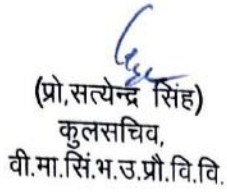 (प्रो,सत्येन्द्र सिंह)
कुलसचिव,
वी.मा.सिं.भ.उ.प्रौ.वि.वि.